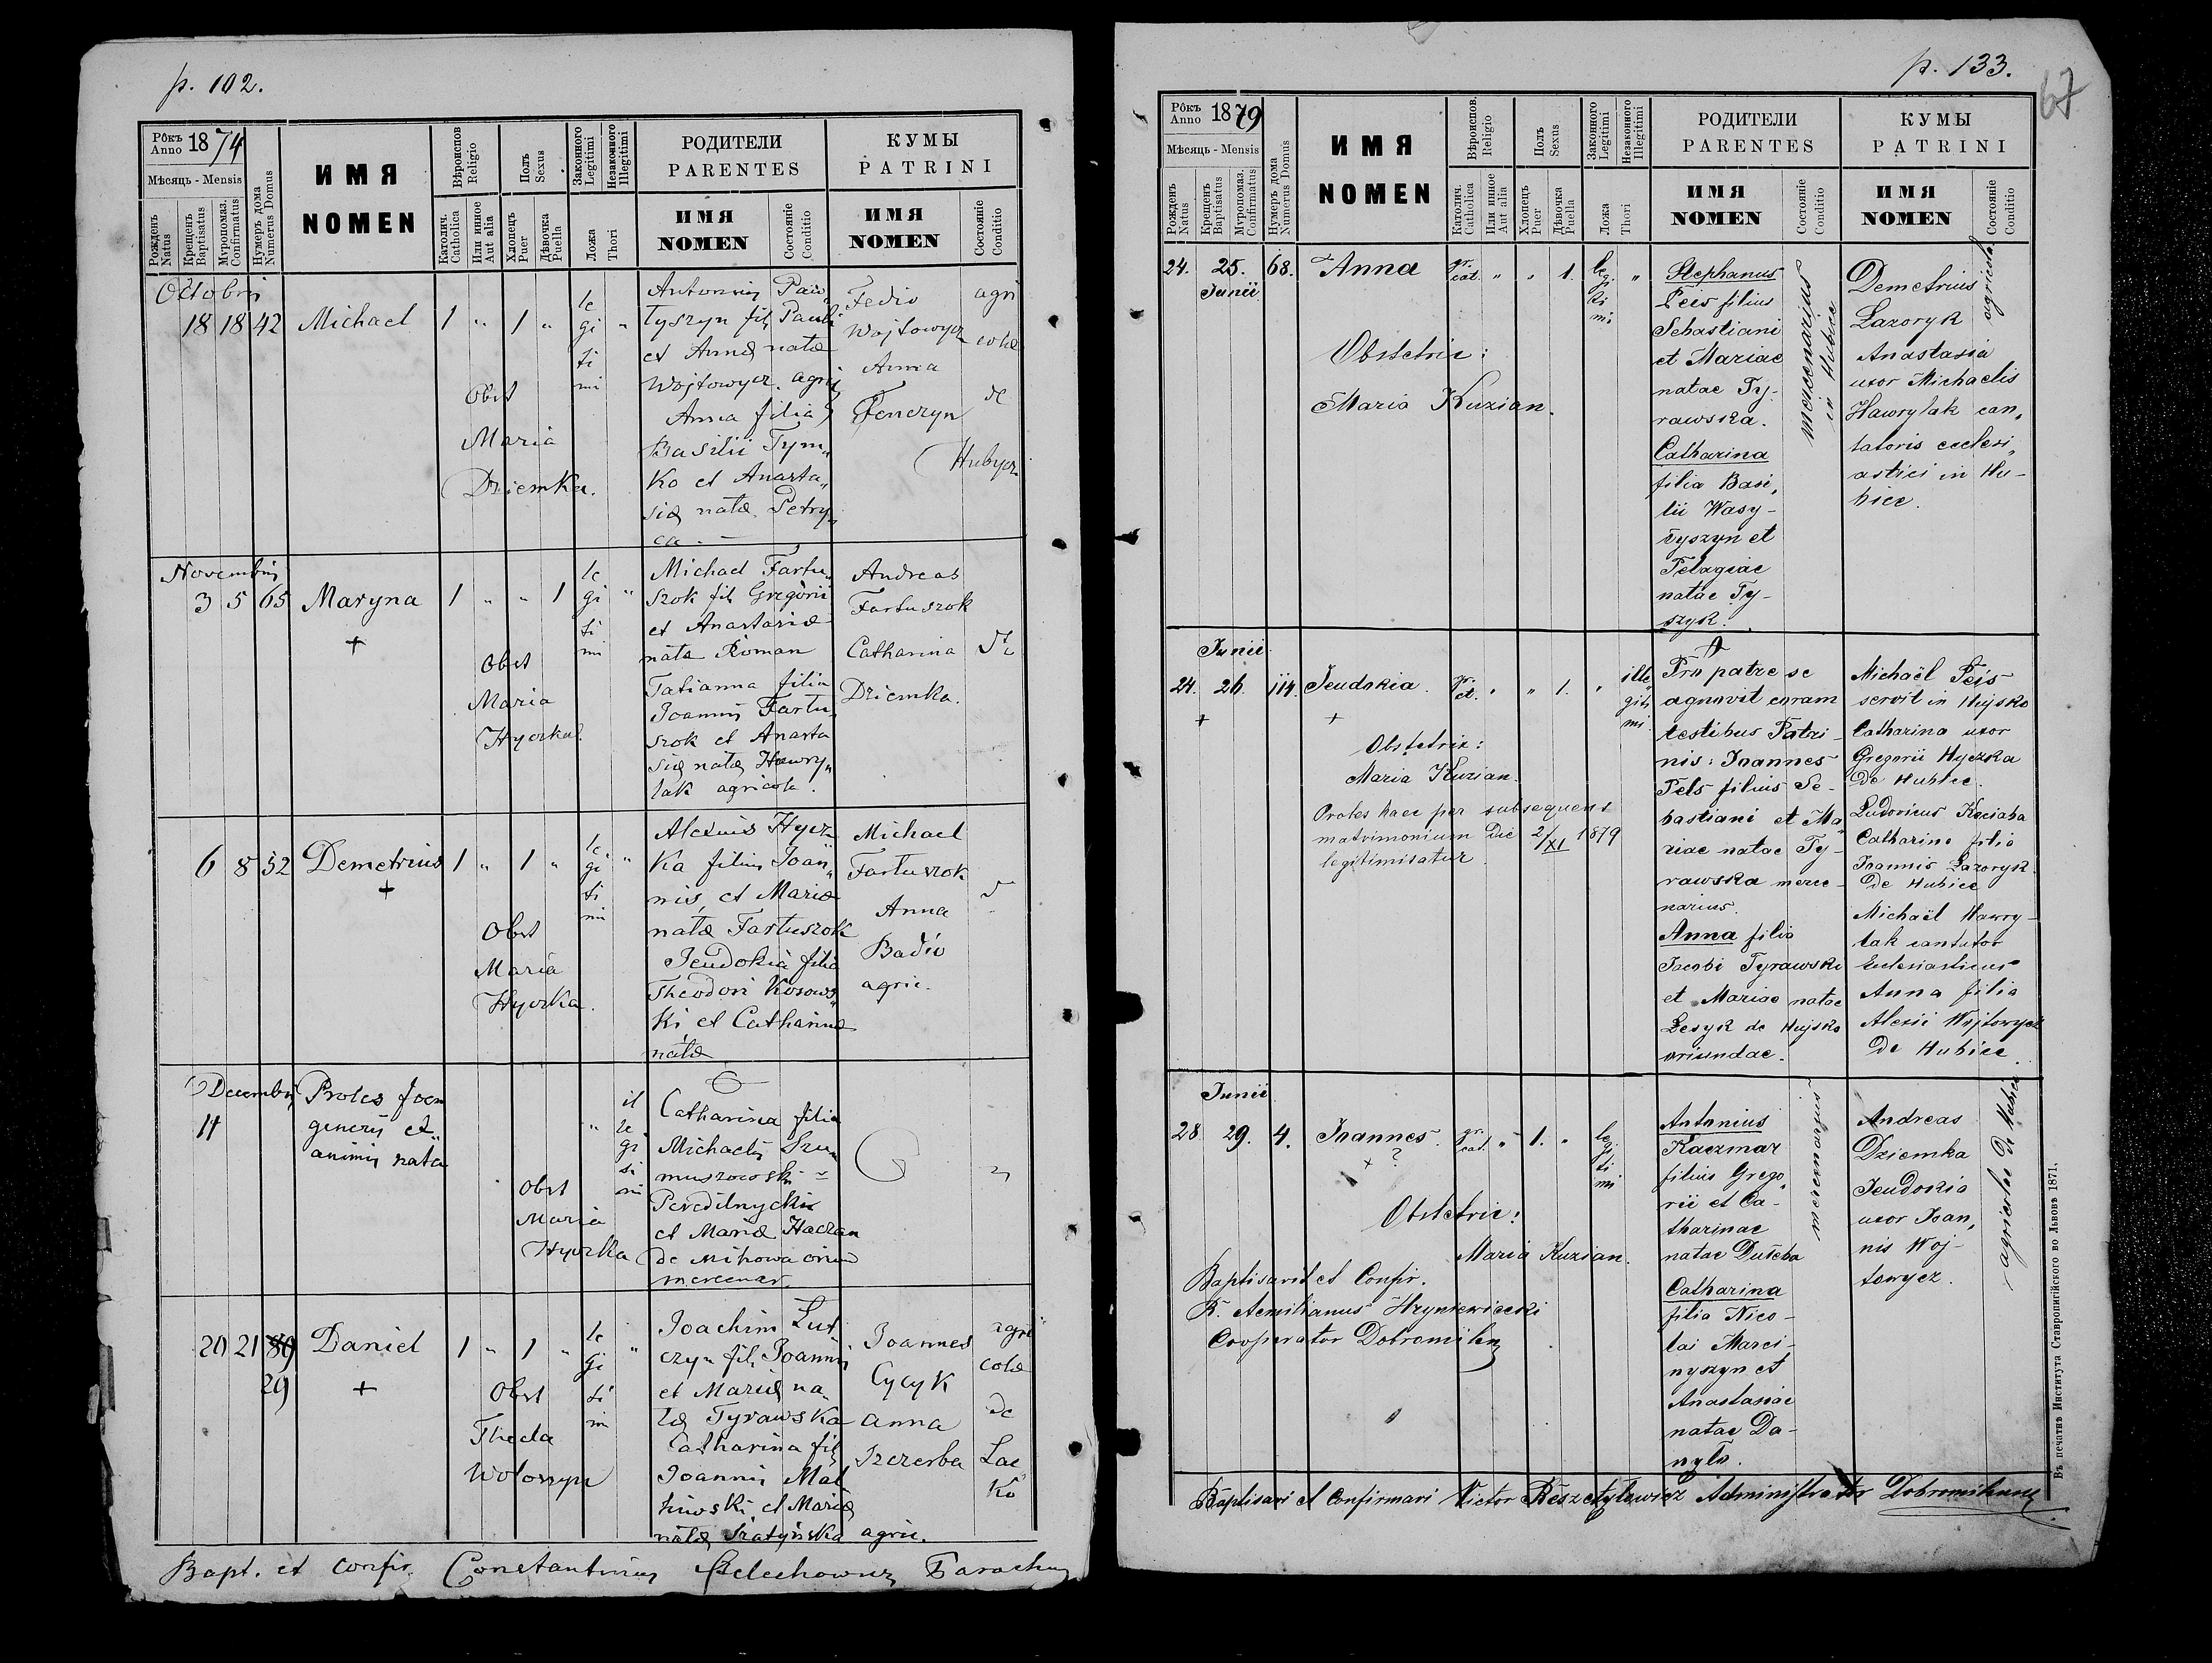 p. 102.
Рôкъ
Anno 1874
Мѣсяць - Mensis
Рожденъ
Natus
Крещенъ
Baptisatus
Мѵропомаз.
Confirmatus
Нумеръ дома
Numerus Domus
ИМЯ
NOMEN
Вѣроиспов
Religio
Католич.
Catholica
Или инное
Aut alia
Полъ
Sexus
Хлопецъ
Puer
Дѣвочка
Puella
Законного
Legitimi
Незаконного
Illegitimi
Ложа
Thori
РОДИТЕЛИ
PARENTES
ИМЯ
NOMEN
Состояніе
Conditio
КУМЫ
PATRINI
ИМЯ
NOMEN
Состояніе
Conditio
Octobris
18 18 42 Michael 1 " 1 "
le
gi "
ti
mi
Obst
Maria
Dziemka.
Antonius Paw
tyszyn fil. Pauli
et Annæ natæ
Wojtowycz. agri
Anna filia
Basilii Tym
ko et Anasta„
siæ natæ Petry„
ca. —
Fedio
Wojtowycz
Anna
Fenczyn
agri
colæ
de
Hubycz
Novembris
3 5 65 Maryna 1 " " 1
+
le
gi "
ti
mi
Obst
Maria
Hyczka.
Michael Fartu„
szok fil. Gregorii
et Anastasiæ
natæ Roman
Tatianna filia
Joannis Fartu„
szok et Anasta
siæ natæ Hawry„
lak agricolæ.
Andreas
Fartuszok
Catharina
Dziemka.
6 8 52 Demetrius 1 " 1 "
+
le
gi "
ti
mi
Obst
Maria
Hyczka.
Alexius Hycz
ka filius Joan„
nis, et Mariæ
natæ Fartuszok
Jeudokia filia
Theodori Kosows„
ki, et Catharinæ
natæ
Michael
Fartuszok
Anna
Badio
agric.
Decembris
14
Proles foem
generis et
animis nata
"
il
le
gi
ti
mi
Obst
Maria
Hyczka
Catharina filia
Michaelis Szu
muszowski
Peredilnyckie
et Mariæ Haczan
de Mihowa oriund
mercenar.
20 21 89 Daniel 1 " 1 "
29 +
le
gi "
ti
mi
Obst
Thecla
Woloszyn
Joachim Lut
czyn fil. Joannis
et Mariæ na„
tæ Tyrawska
Catharina fil.
Joannis Mal
hiwski, et Mariæ
natæ Szatyńska agric.
Joannes
Cycyk
Anna
Szczerba
agri
colæ
de
Lac
ko
Bapt. et confir. Constantinus Parochus
p. 133.
67
Рôкъ
Anno 1879
Мѣсяць - Mensis
Рожденъ
Natus
Крещенъ
Baptisatus
Мѵропомаз.
Confirmatus
Нумеръ дома
Numerus Domus
ИМЯ
NOMEN
Вѣроиспов.
Religio
Католич.
Catholica
Или инное
Aut alia
Полъ
Sexus
Хлопецъ
Puer
Дѣвочка
Puella
Законного
Legitimi
Незаконного
Illegitimi
Ложа
Thori
РОДИТЕЛИ
PARENTES
ИМЯ
NOMEN
Состояніе
Conditio
КУМЫ
PATRINI
ИМЯ
NOMEN
Состояніе
Conditio
24. 25. 68. Anna gr. cat. " " 1.
Junii
le
gi "
ti
mi
Obstetrix:
Maria Kuzian.
Stephanus
Pees filius
Sebastiani
et Mariae
natae Ty-
rawska.
Catharina
filia Basi„
lii Wasy-
lyszyn et
Pelagiae
natae Ty-
szyk.
mercenarius
in Hubice
Demetrius
Lazoryk
Anastasia
uxor Michaelis
Hawrylak can„
tatoris eclesi„
astici in Hu-
bice.
agricola
Junii
24. 26. 114. Jeudokia. gr. cat. " " 1. "
+ +
ille
giti
mi.
Obstetrix:
Maria Kuzian.
Proles haec per subsequens
matrimonium die 2/XI 1879
legitimisatur.
Pro patre se
agnovit coram
testibus Patri-
nis: Joannes
Pels filius Se-
bastiani et Ma
riae natae Ty-
rawska merce-
narius.
Anna filia
Jacobi Tyrawski
et Mariae natae
Lesyk de Hujsko
oriundae.
Michaël Peis
servit in Hujsko
Catharina uxor
Gregorii Hyczka
de Hubice.
Ludovicus Kociaba
Catharina filia
Joannis Lazoryk
de Hubice
Michaël Hawry-
lak cantator
Eclesiasticus
Anna filia
Alexii Wojtowycz
de Hubice.
Junii
28. 29. 4. Joannes. gr. cat. " 1. "
+ ?
le
gi
ti
mi
Obstetrix:
Maria Kuzian.
Baptisavit et Confir.
R. Aemilianus Hryniewiecki
Cooperator Dobromilen
Antonius
Kaczmar
filius Grego„
rii et Ca-
tharinae
natae Dučeba
Catharina
filia Nico-
lai Marci-
nyszyn et
Anastasiae
natae Da-
nylo.
mercenarius
Andreas
Dziemka
Jeudokia
uxor Joan„
nis Woj-
towycz.
agricolae de Hubice
Baptisavi et Confirmavi Victor Reszetyłowicz Administrator Dobromilensis
Въ печатнѣ Института Ставропигійского во Львовѣ 1871.